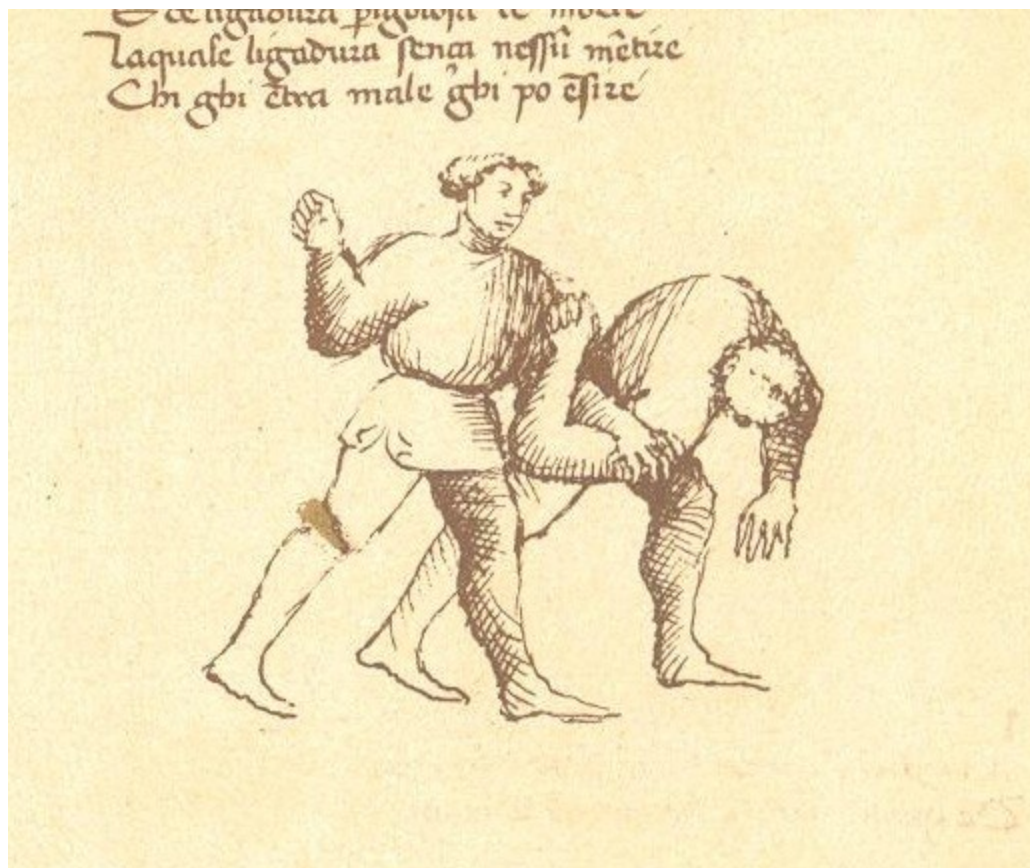 ligadura
Laquale ligadura senca nessũ mẽtire
Chi ghi ẽtra male ghi po ẽsire